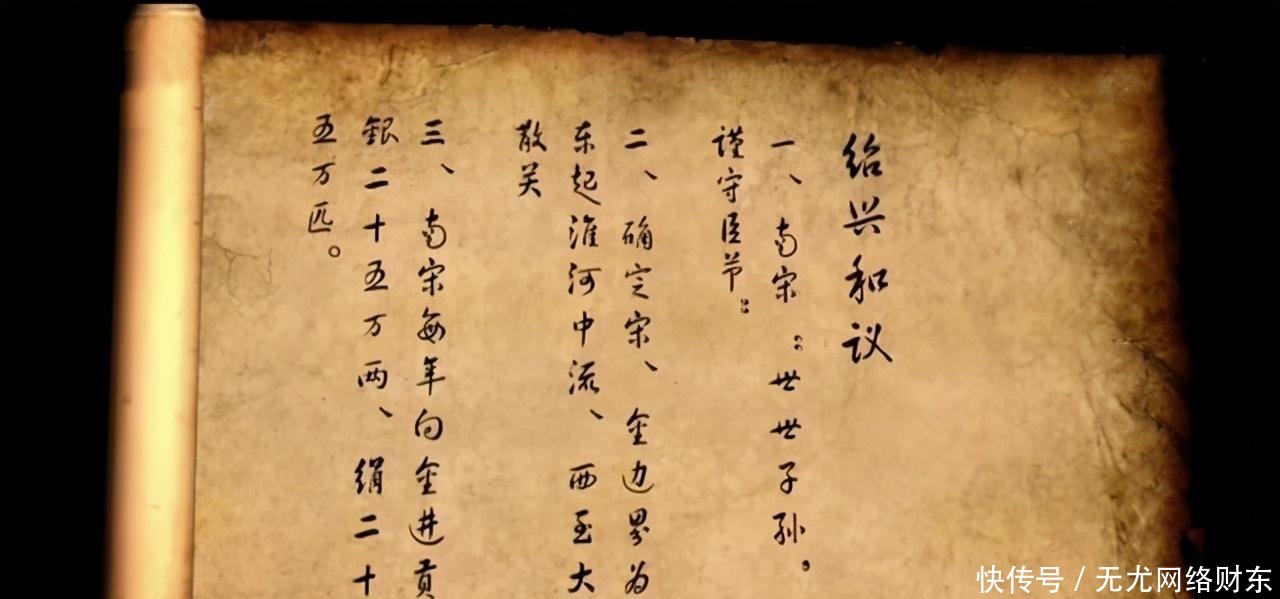 绍兴和议
一、南宋“世世子孙，
谨守臣节”
二、确定宋、金边界为
东起淮河中流、西至大
散关
三、南宋每年向金进贡
银二十五万两、绢二十
五万匹。
快传号 / 无尤网络财东